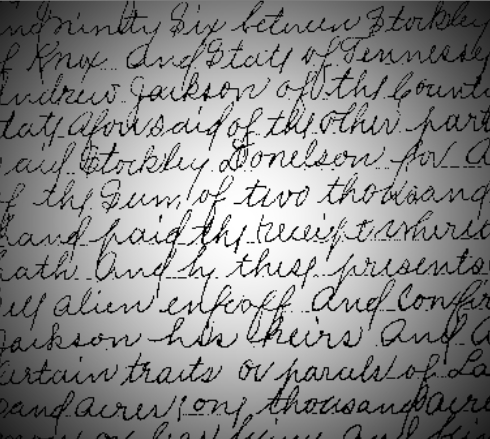 nd ninity Six between Stockley
f Knox And State of Tennesse
Andrew Jackson of the Count
tate aforesaid of the other part
said Stockley Donelson for
f the Sum of two thousand
hand paid the receipt where
hath And by these presents
ell alien enfeoff And Confir
Jackson his heirs And A
Certain traits or parcels of La
sand acres one thousand acre